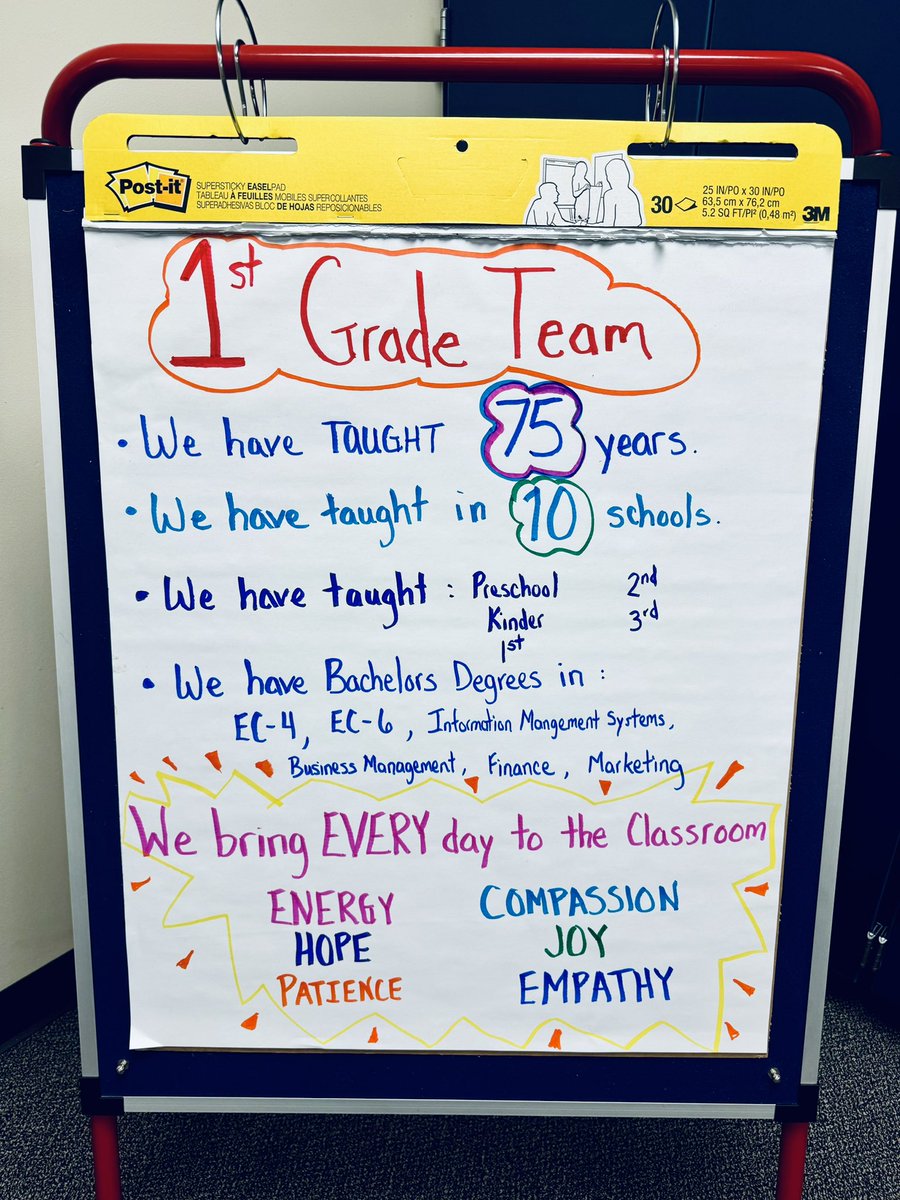 Post-it
SUPERSTICKY EASELPAD
TABLEAU À FEUILLES MOBILES SUPERCOLLANTES
SUPERADHESIVAS BLOC DE HOJAS REPOSICIONABLES
30
25 IN/PO x 30 IN/PO
63,5 cm x 76,2 cm
5.2 SQ FT/PI² (0,48 m²)
3M
1st Grade Team
• We have TAUGHT 75 years.
• We have taught in 10 schools.
• We have taught : Preschool 2nd
Kinder 3rd
1st
• We have Bachelors Degrees in :
EC-4, EC-6, Information Mangement Systems,
Business Management, Finance, Marketing
We bring EVERY day to the Classroom
ENERGY COMPASSION
HOPE JOY
PATIENCE EMPATHY